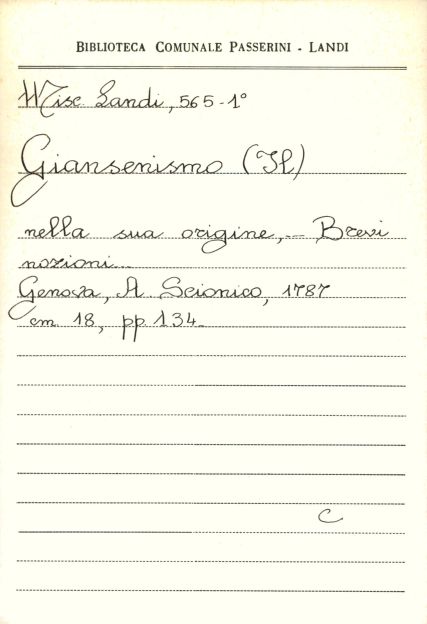 BIBLIOTECA COMUNALE PASSERINI - LANDI
Misc Landi, 565-1°
Giansenismo (Il)
nella sua origine, - Brevi
nozioni...
Genova, A. Scionico, 1787
cm 18, pp. 134.
C